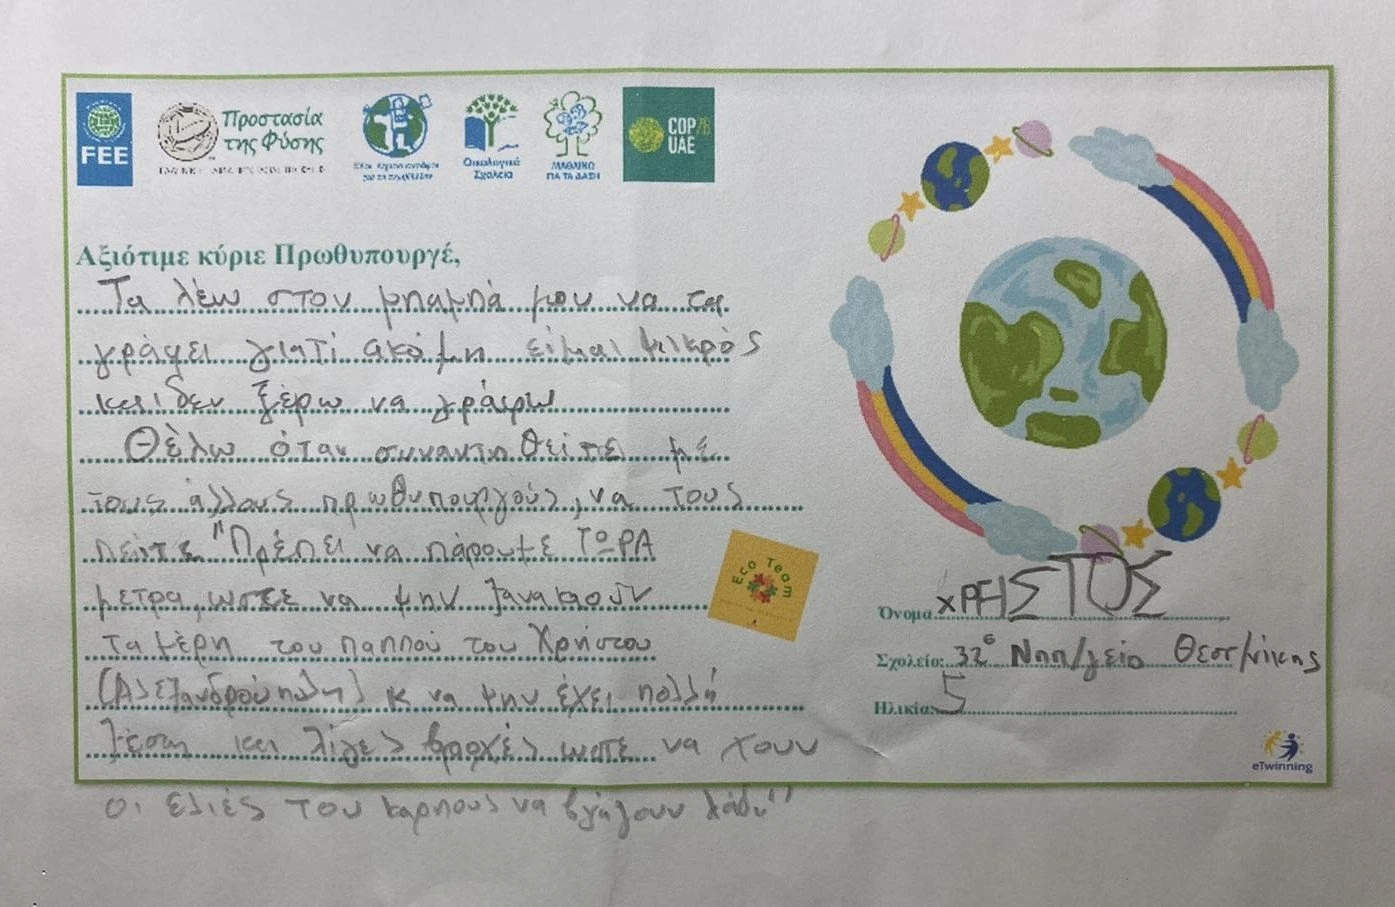 FEE
Προστασία
της Φύσης
Οικολογικά
Σχολεία
ΜΑΘΑΙΝΩ
ΓΙΑ ΤΑ ΔΑΣΗ
COP28
UAE
Αξιότιμε κύριε Πρωθυπουργέ,
Τα λέω στον μπαμπά μου να τα
γράψει γιατί ακόμη είμαι μικρός
και δεν ξέρω να γράφω
Θέλω όταν συναντηθείτε με
τους άλλους πρωθυπουργούς, να τους
πείτε "Πρέπει να πάρουμε ΤΩΡΑ
μετρα, ωστε να μην ξανακαούν
τα μέρη του παππού του Χρήστου
(Αλεξανδρούπολη) κ να μην έχει πολλή
ζέστη και λίγες βροχές ωστε να χουν
οι ελιές του καρπους να βγάζουν λάδι"
Eco Team
Όνομα: ΧΡΗΣΤΟΣ
Σχολείο: 32ο Νηπ/γείο Θεσ/νίκης
Ηλικία: 5
eTwinning